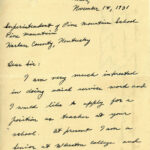 November 14, 1931
Superintendent of Pine Mountain School
Pine Mountain
Harlan County, Kentucky
Dear Sir:
I am very much interested
in doing social service work and
I would like to apply for a
position as teacher at your
school. At present I am a
senior at Wheaton College and